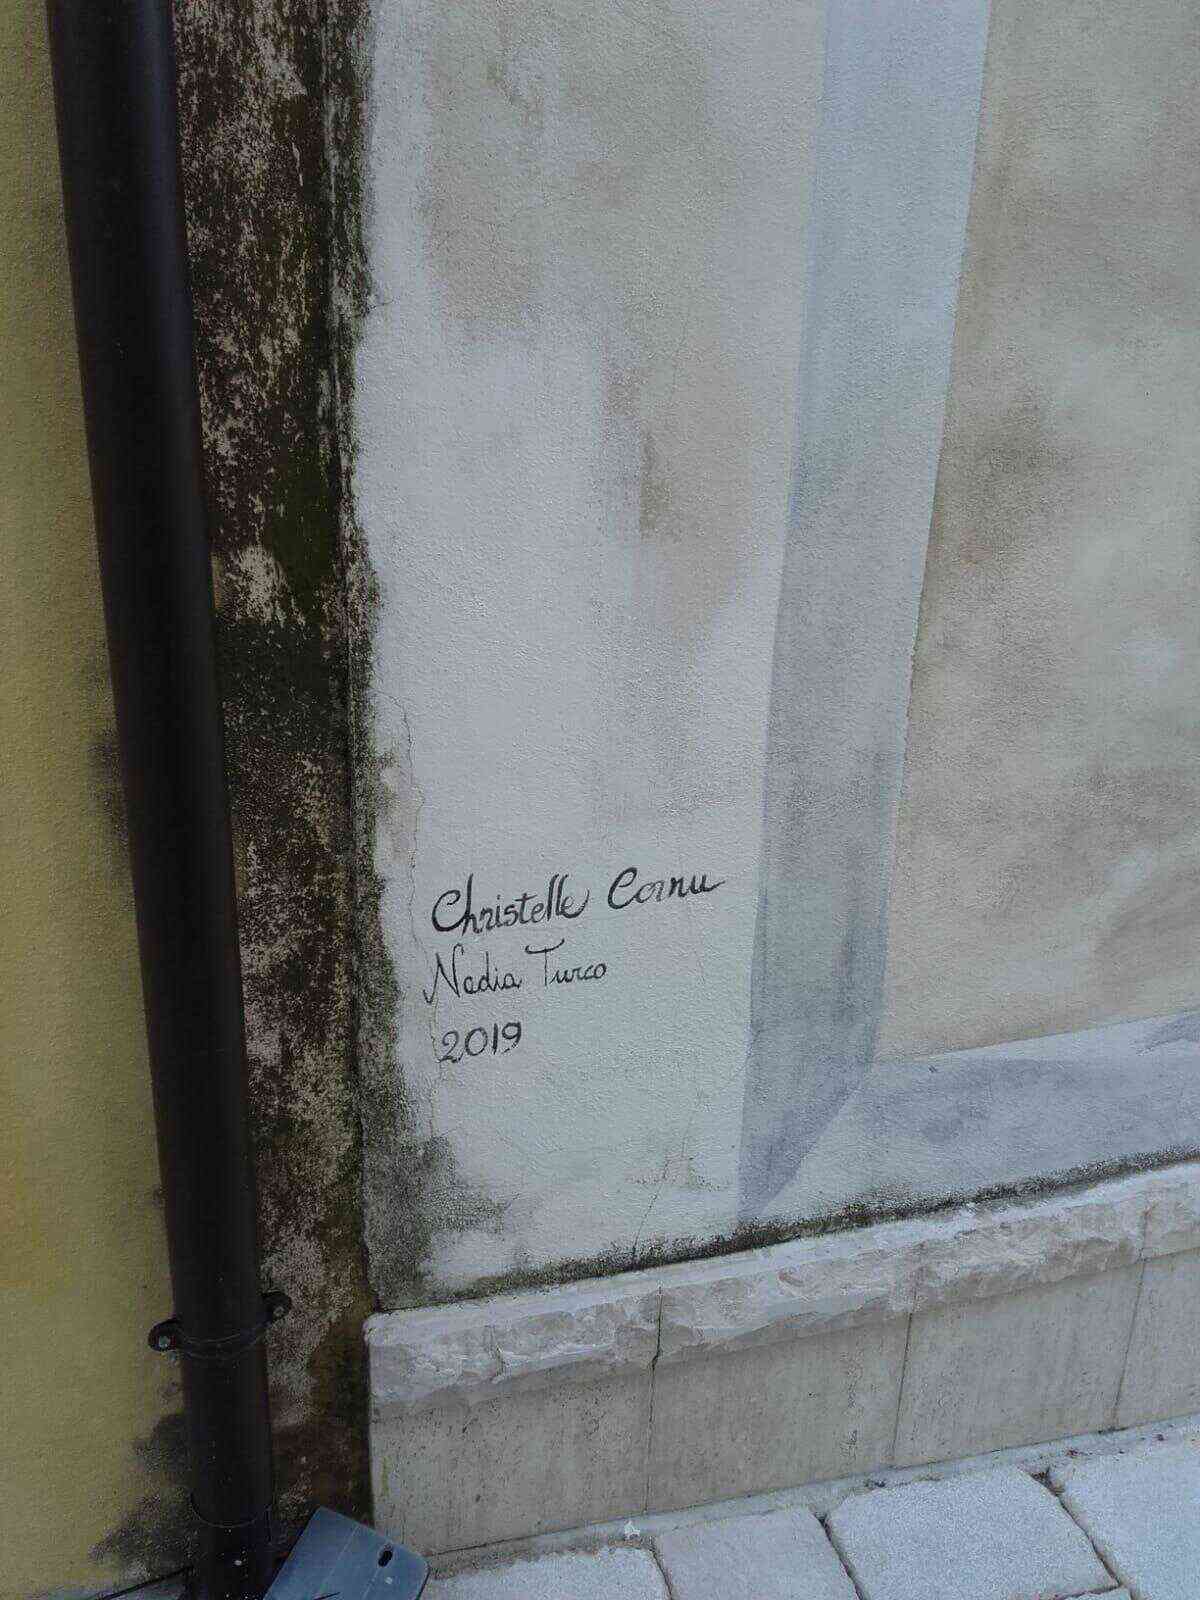 Christelle Cornu
Nadia Turco
2019